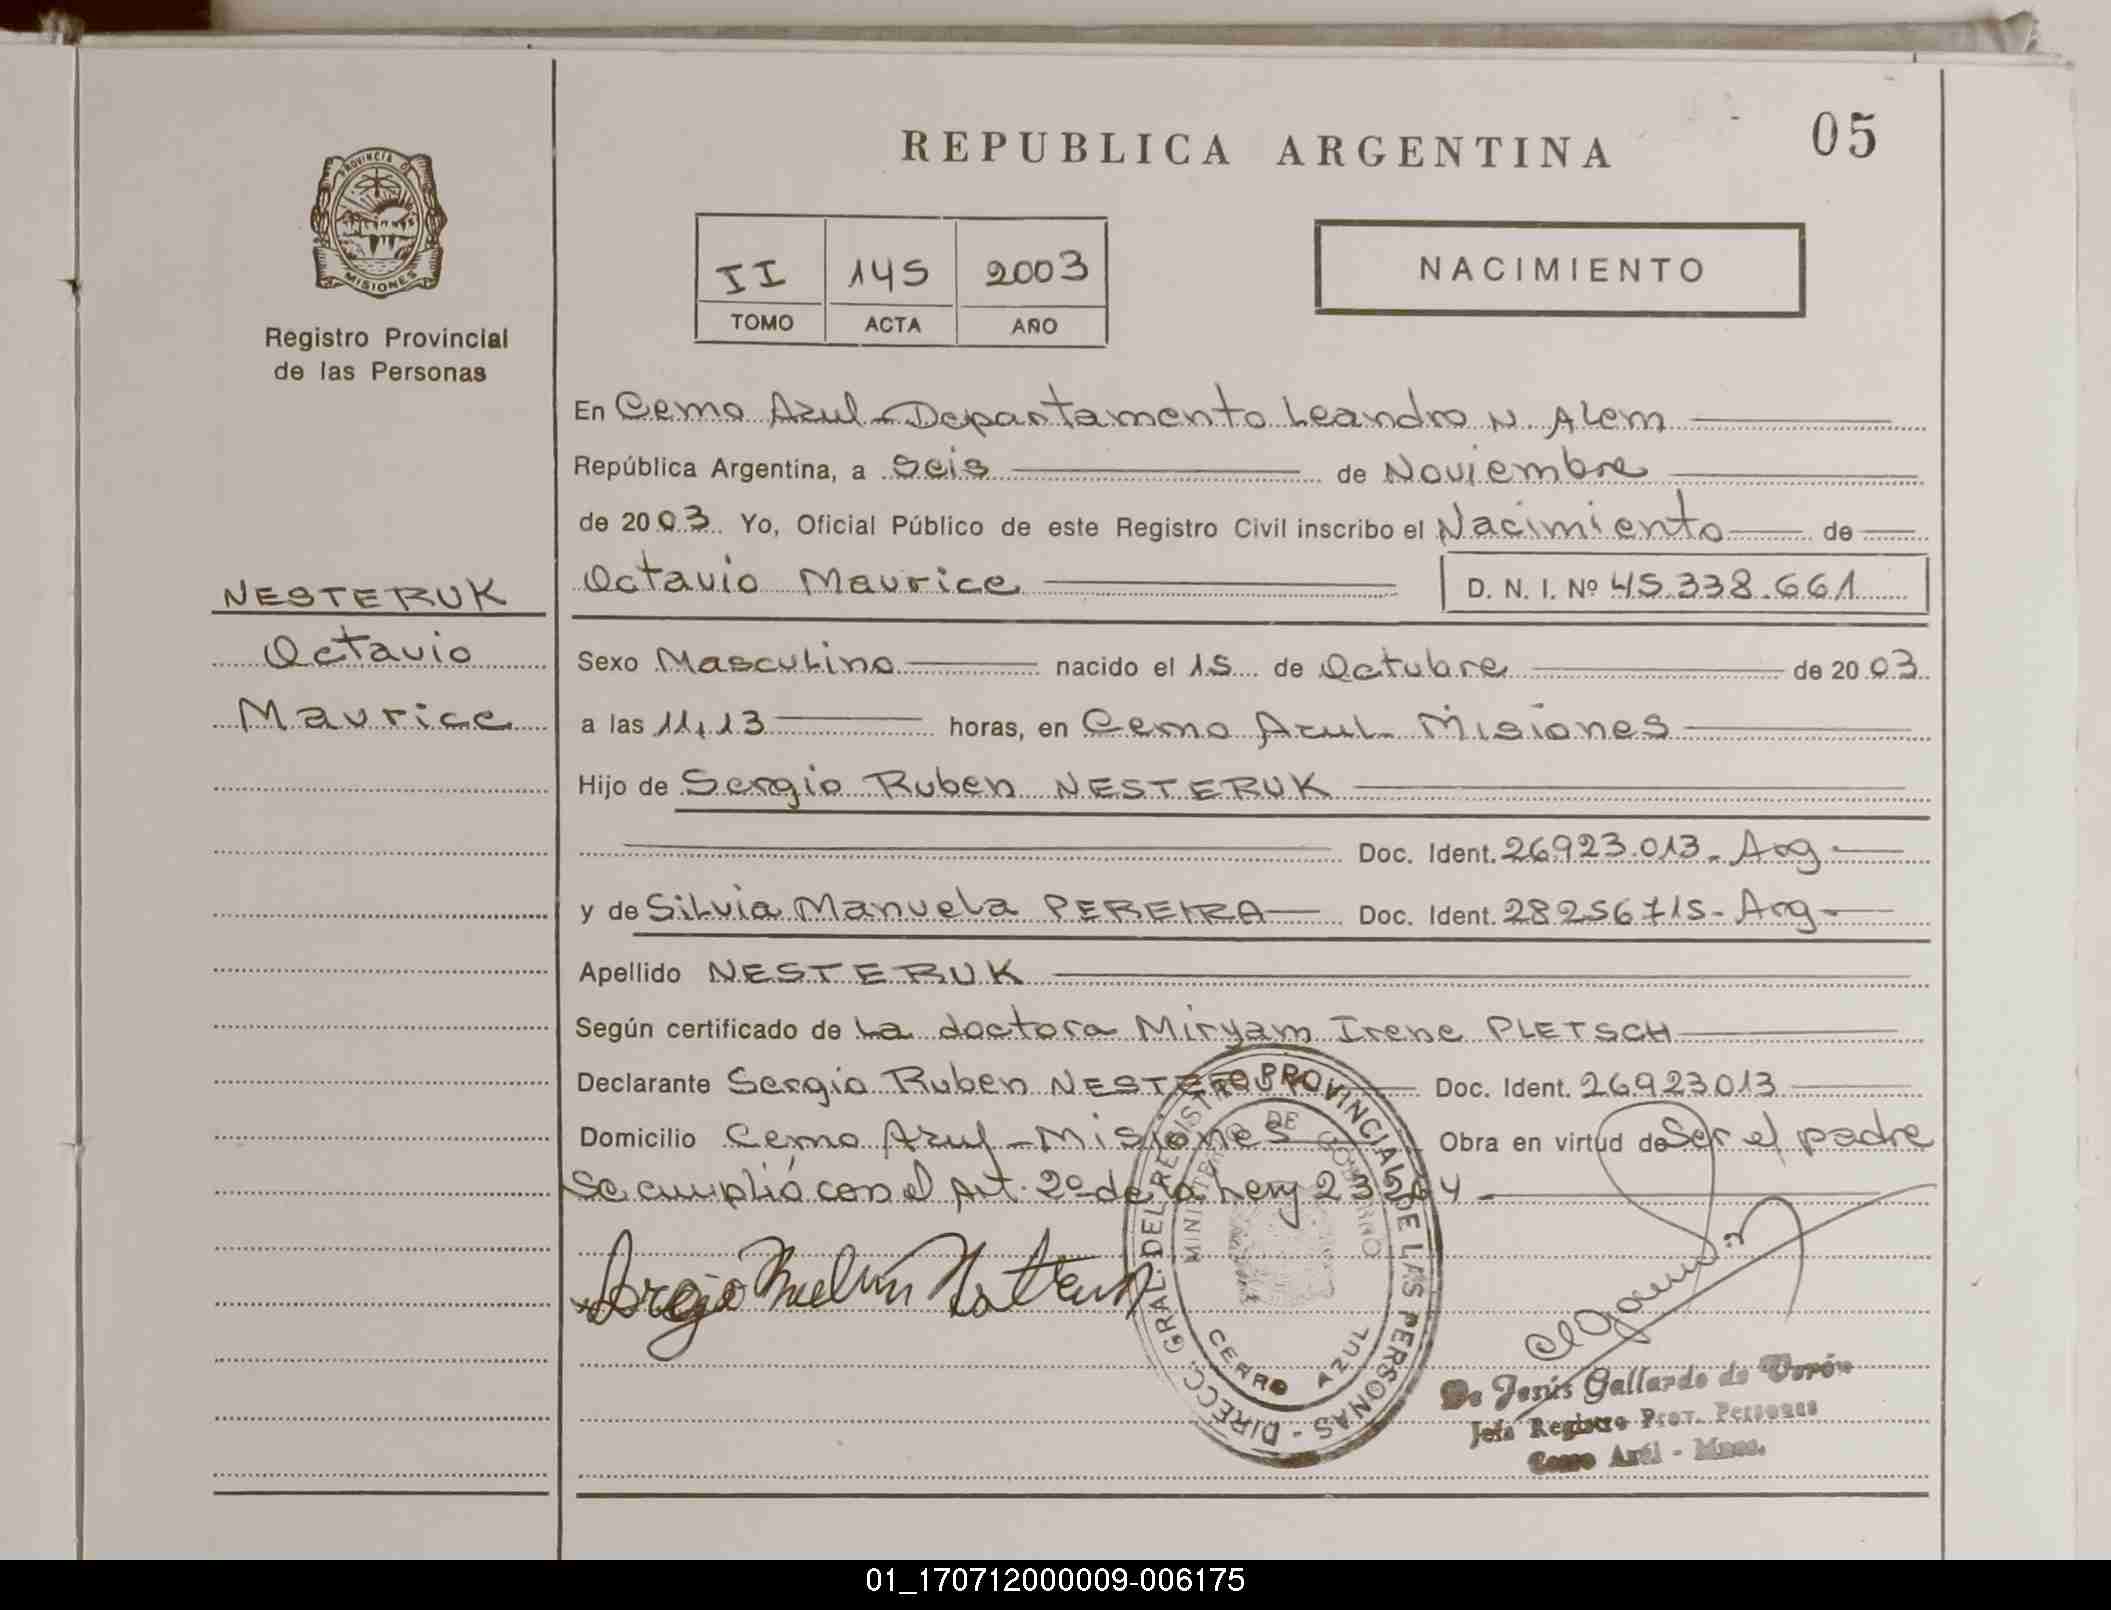 REPUBLICA ARGENTINA
05
PROVINCIA DE
MISIONES
Registro Provincial
de las Personas
II 145 2003
TOMO ACTA AÑO
NACIMIENTO
NESTERUK
Octavio
Maurice
En Cerro Azul - Departamento Leandro N. Alem
República Argentina, a Seis de Noviembre
de 2003 Yo, Oficial Público de este Registro Civil inscribo el Nacimiento de
Octavio Maurice D. N. I. Nº 45.338.661
Sexo Masculino nacido el 15 de Octubre de 2003
a las 11,13 horas, en Cerro Azul - Misiones
Hijo de Sergio Ruben NESTERUK
Doc. Ident. 26.923.013 - Arg
y de Silvia Manuela PEREIRA Doc. Ident. 28256715 - Arg
Apellido NESTERUK
Según certificado de la doctora Miryam Irene PLETSCH
Declarante Sergio Ruben NESTERUK Doc. Ident. 26923013
Domicilio Cerro Azul - Misiones Obra en virtud de Ser el padre
Se cumplió con el Art. 2º de la Ley 23264
DIRECC. GRAL. DEL REGISTRO PROVINCIAL DE LAS PERSONAS
MINISTERIO DE GOBIERNO
CERRO AZUL
De Jesús Gallardo de Verón
Jefa Registro Prov. Personas
Cerro Azul - Mnes.
01_170712000009-006175